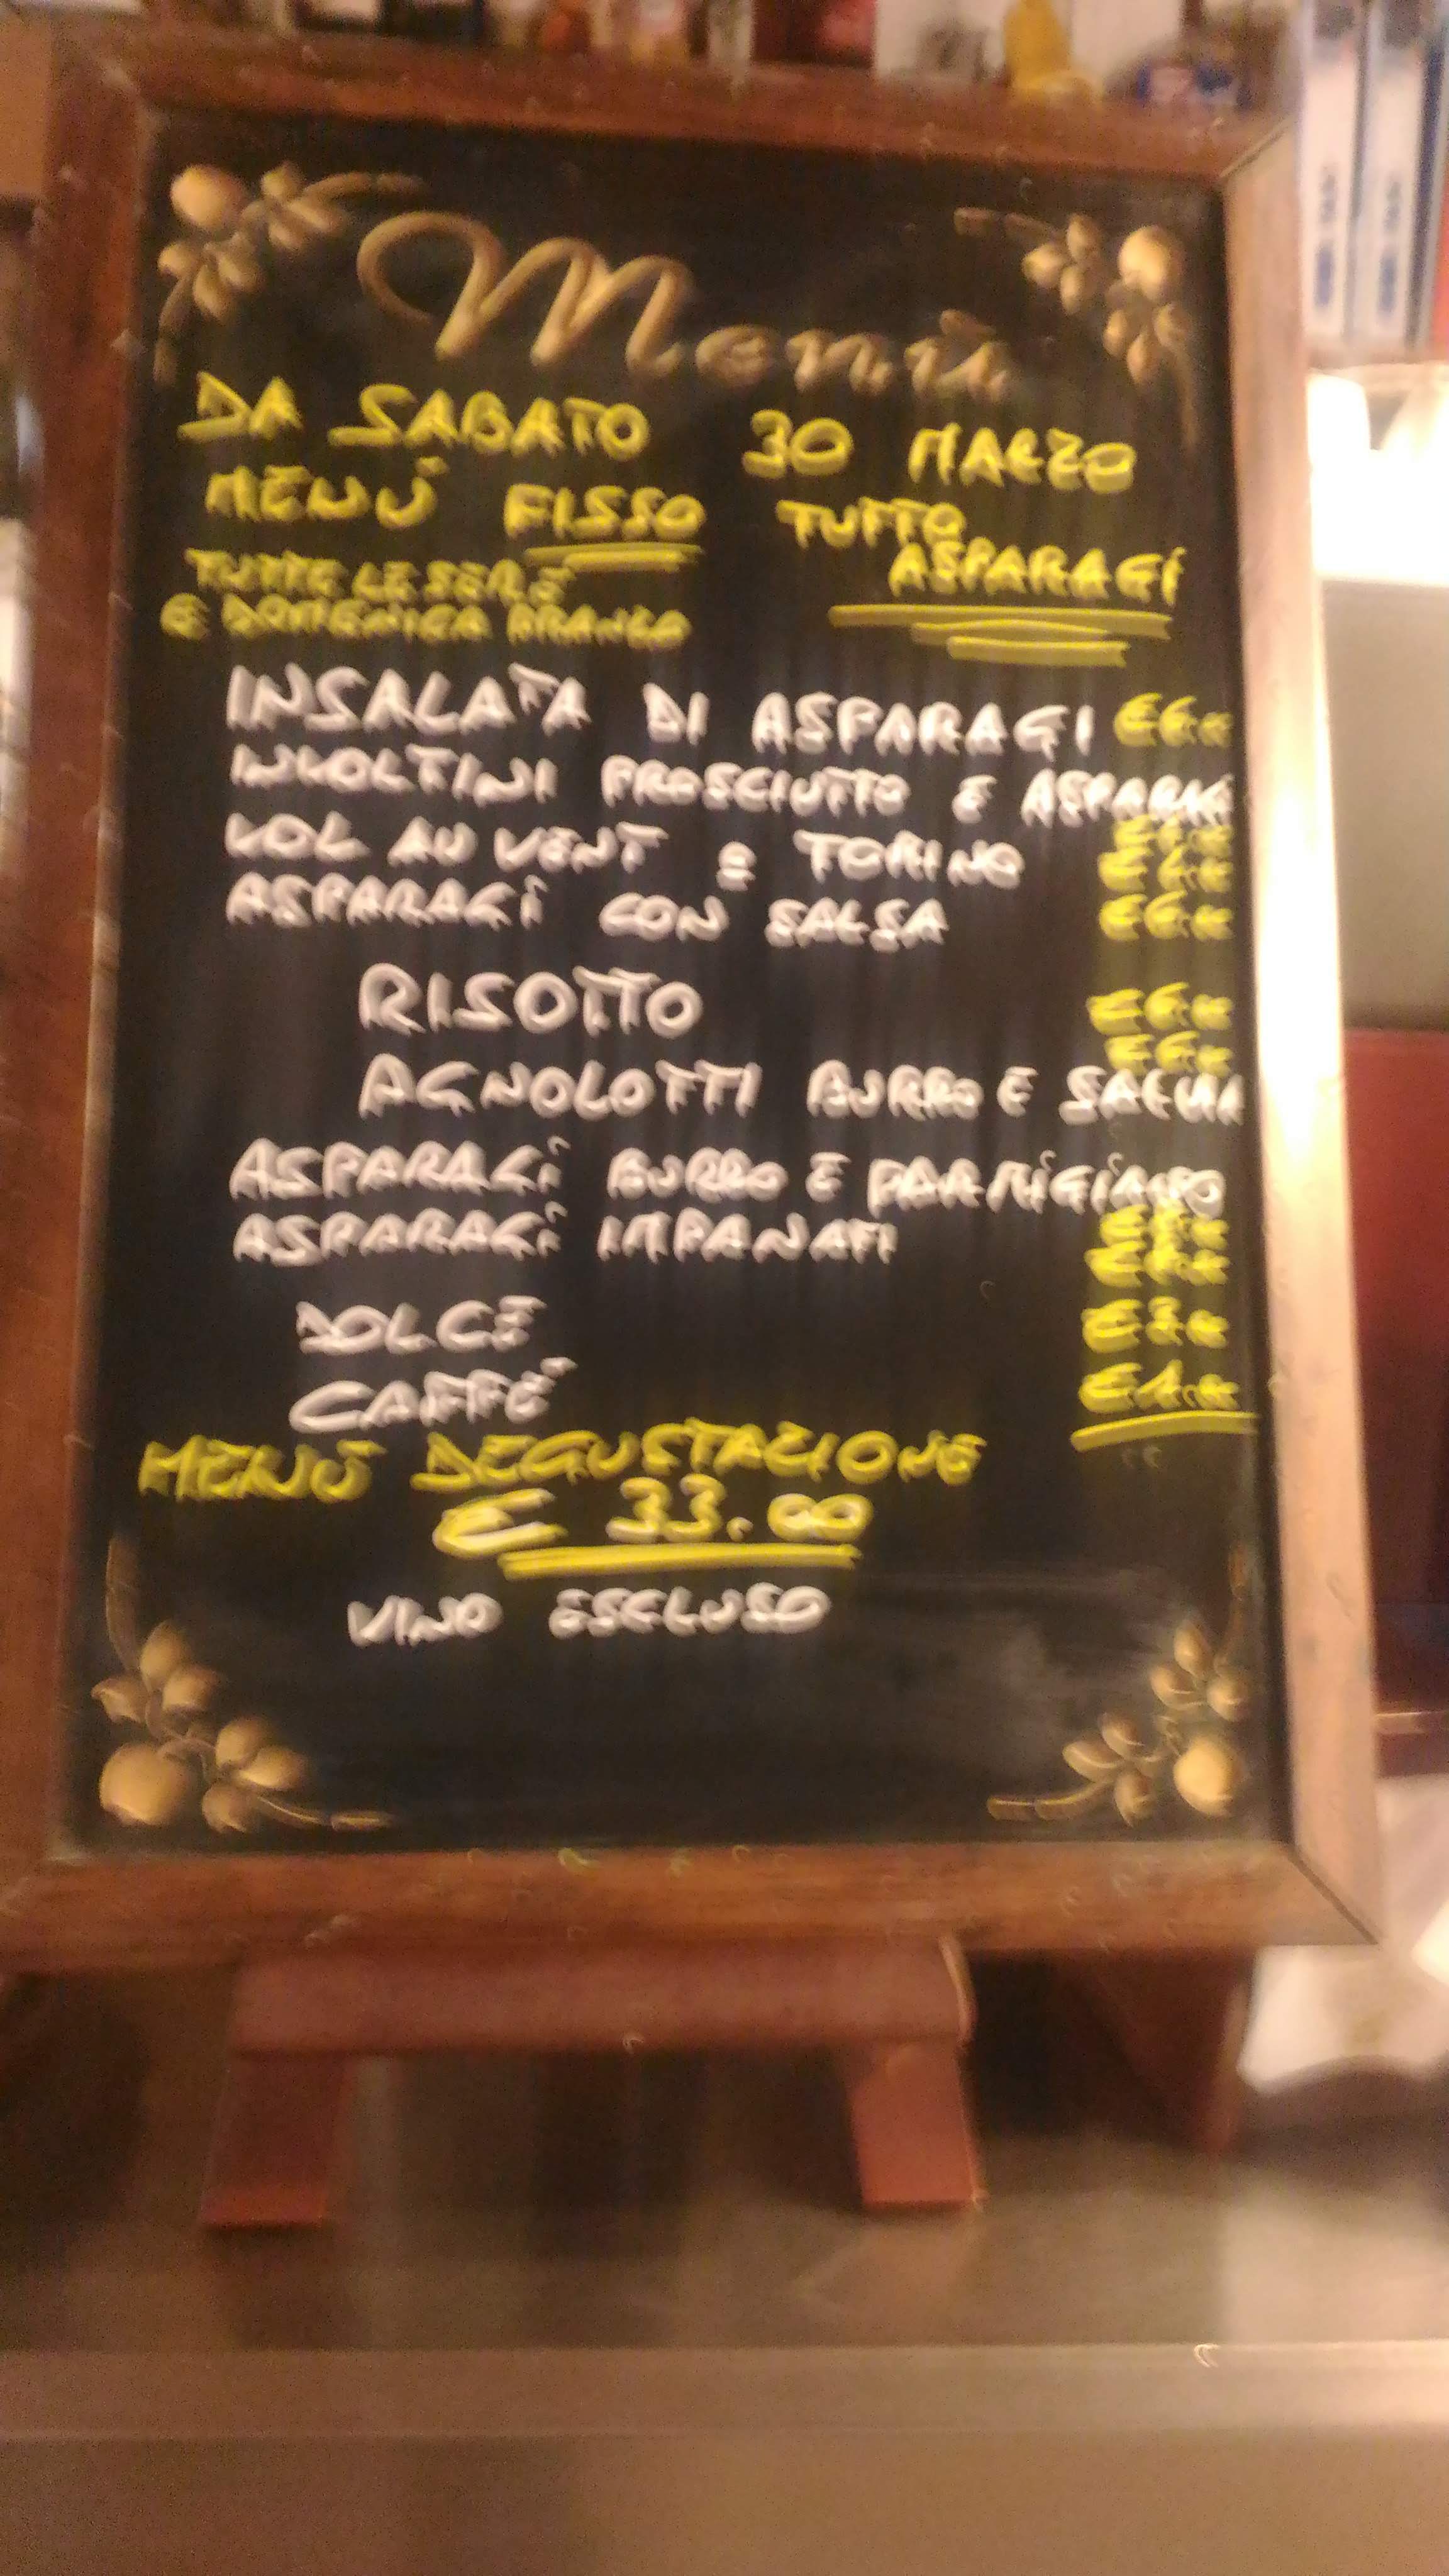 Menù
DA SABATO 30 MARZO
MENÙ FISSO TUTTO
ASPARAGI
TUTTE LE SERE
E DOMENICA PRANZO
INSALATA DI ASPARAGI €6.00
INVOLTINI PROSCIUTTO E ASPARAGI
VOL AU VENT E TORTINO
ASPARAGI CON SALSA €6.00
RISOTTO €6.00
€6.00
AGNOLOTTI BURRO E SALVIA
ASPARAGI BURRO E PARMIGIANO
ASPARAGI IMPANATI
DOLCE
CAFFÈ €1.00
MENÙ DEGUSTAZIONE
€ 33.00
VINO ESCLUSO